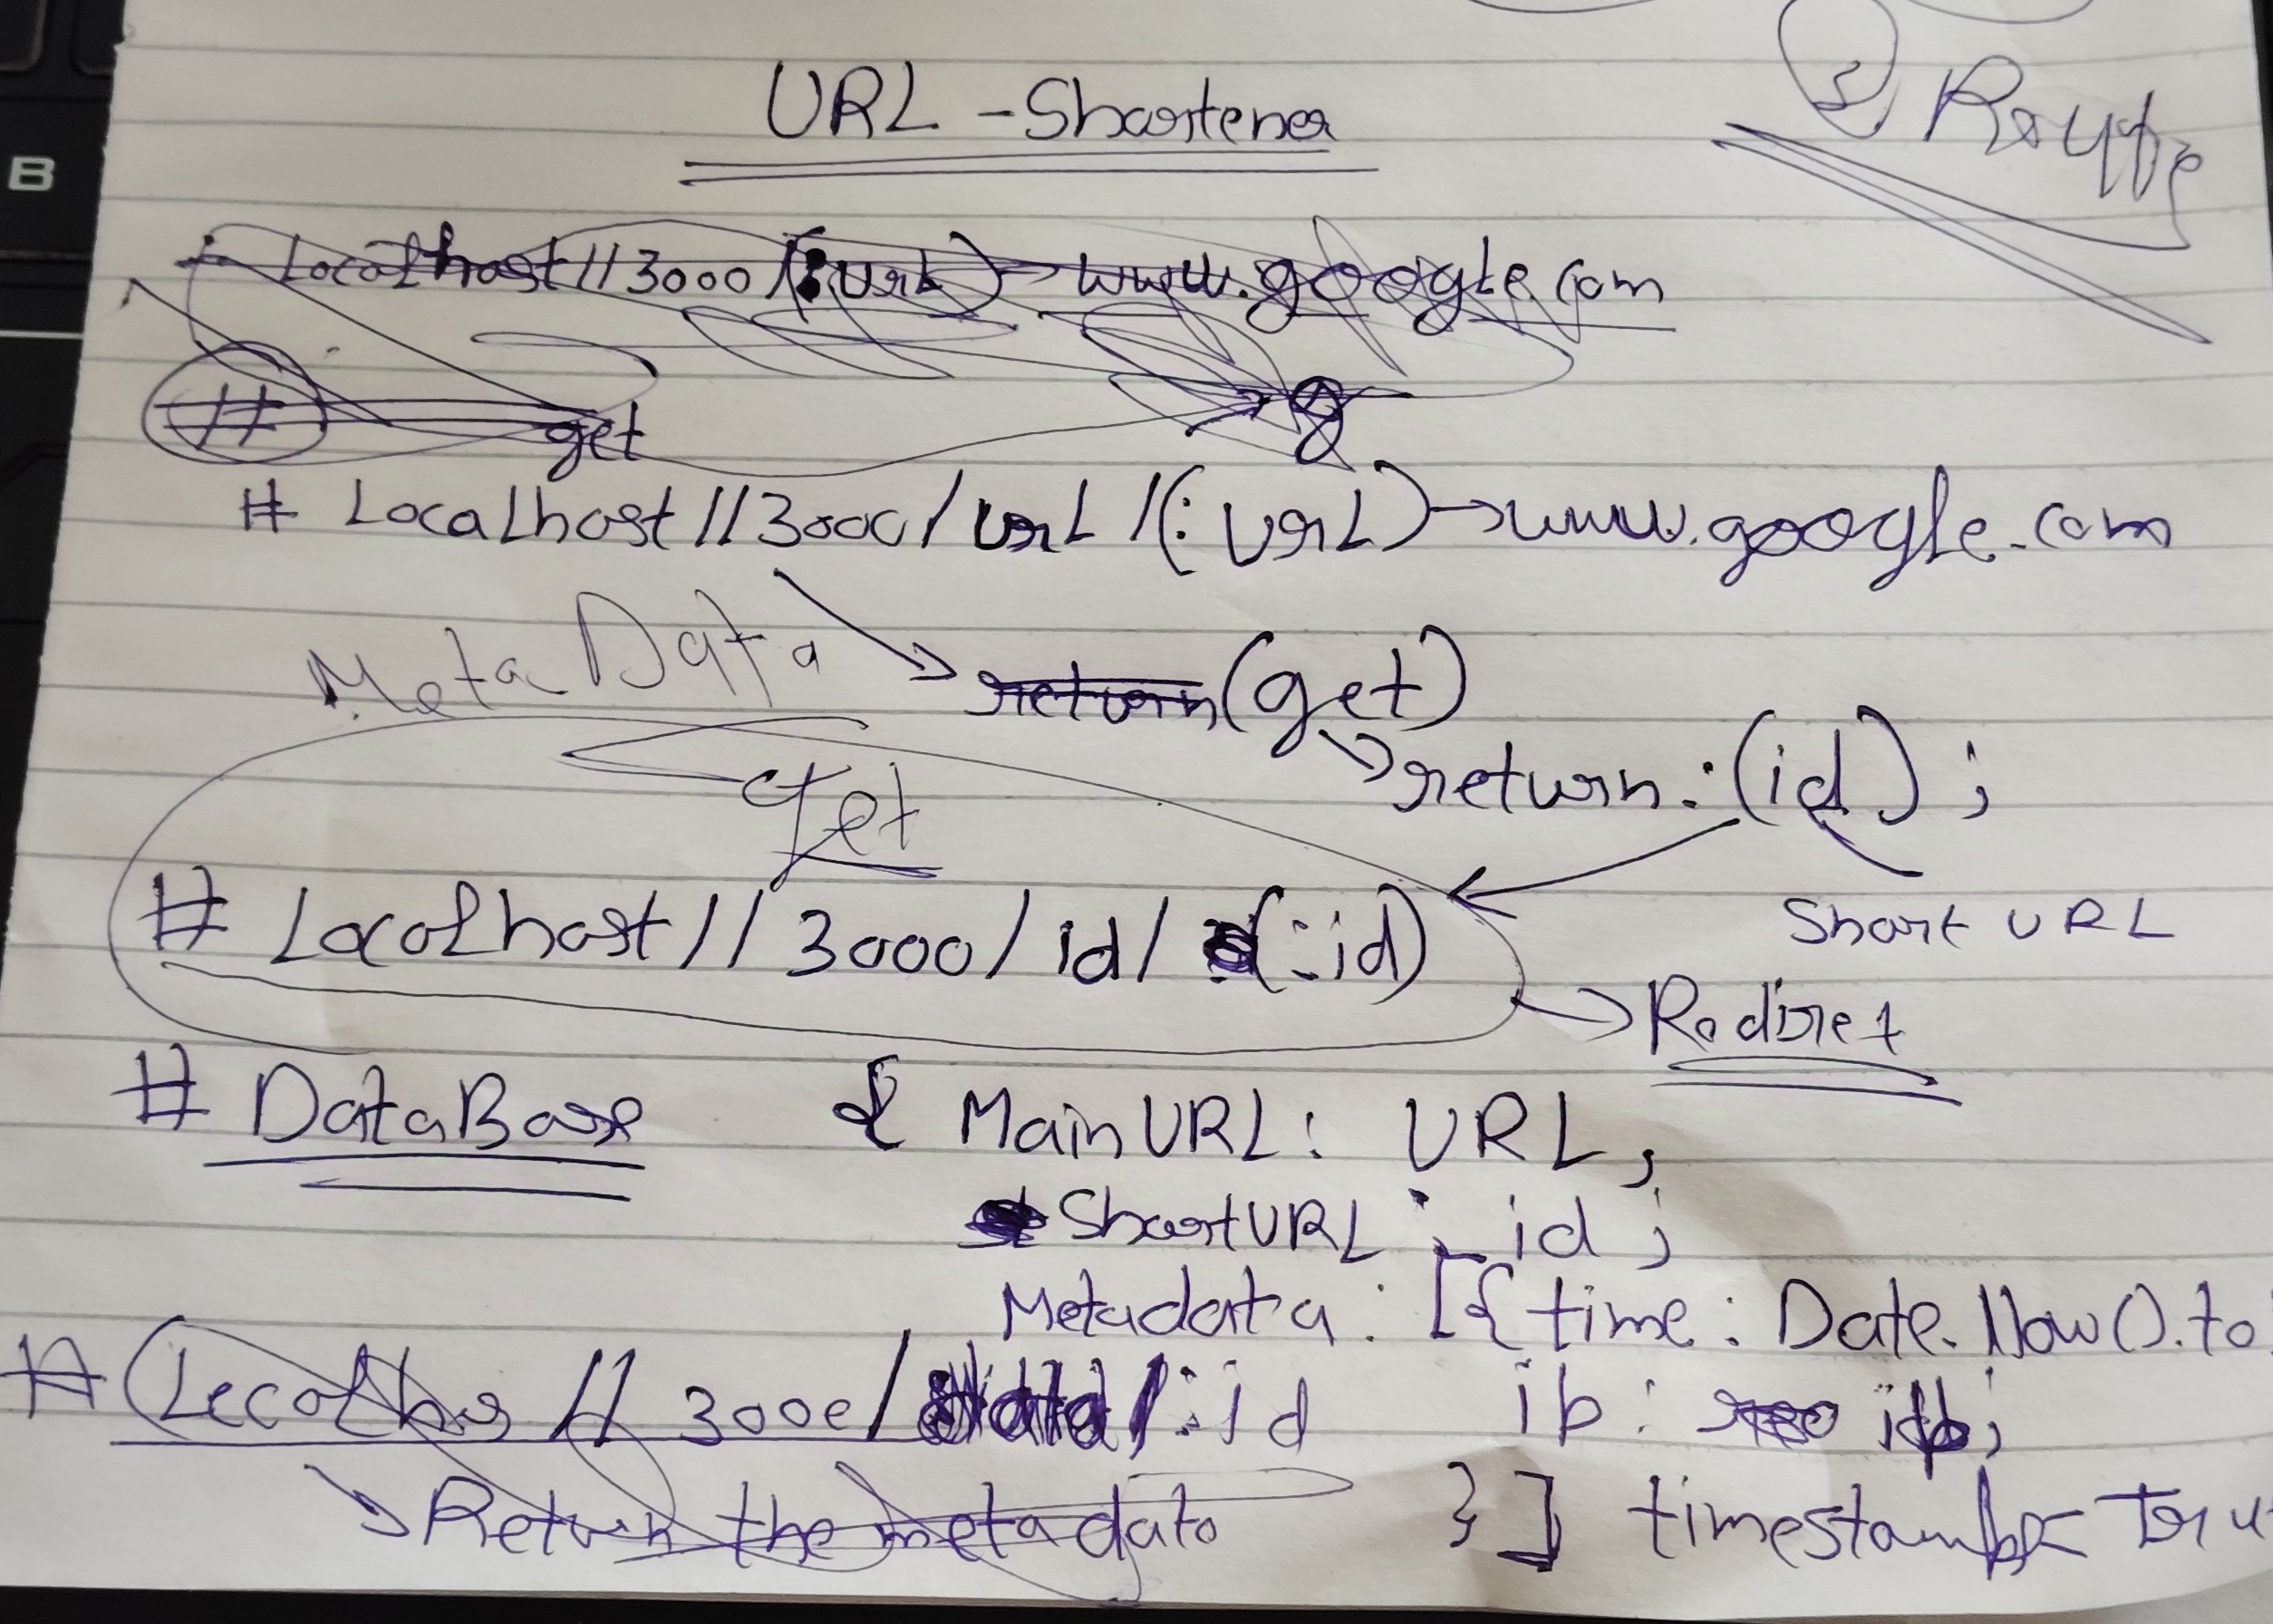 URL - Shortener
Routte
Localhost//3000/(:url) → www.google.com
# get g
# Localhost//3000/url/(:url) → www.google.com
Meta Data
return (get)
return:(id);
Get
# Localhost//3000/id/(:id)
Short URL
Rediret
# DataBase { MainURL: URL,
ShortURL: id;
Metadata: [{ time: Date.Now().to
# Localhos // 3000/ :id ib: ib;
Return the metadata }] timestamps Tru
B